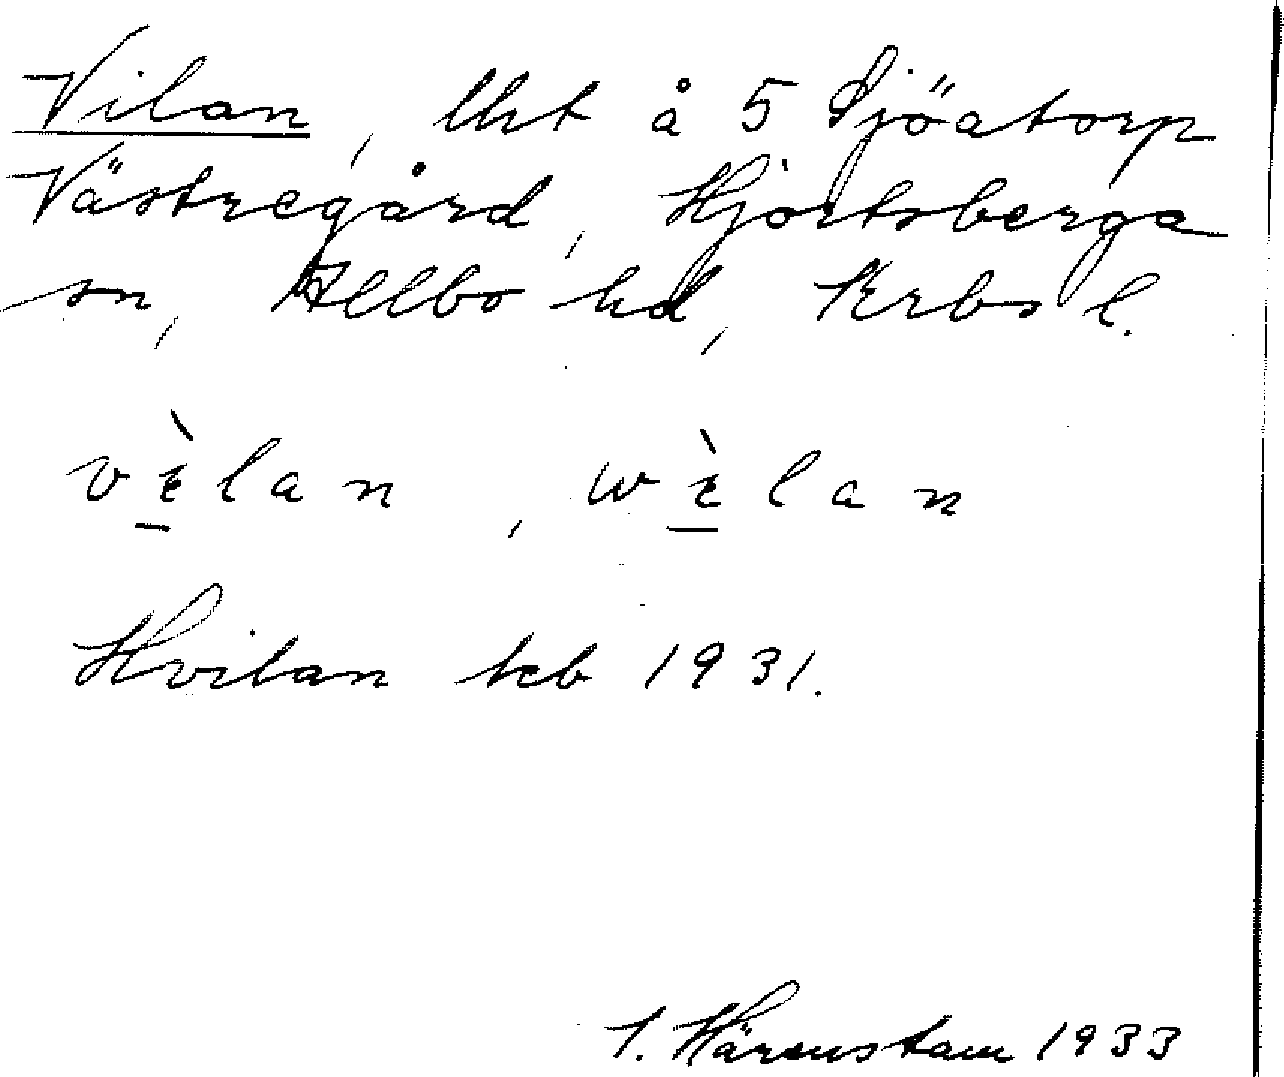 Vilan, lht å 5 Sjöatorp
Västregård, Hjortsberga
sn, Allbo hd, Krbs l.
vèlan, wèlan
Hvilan kb 1931.
I. Härenstam 1933